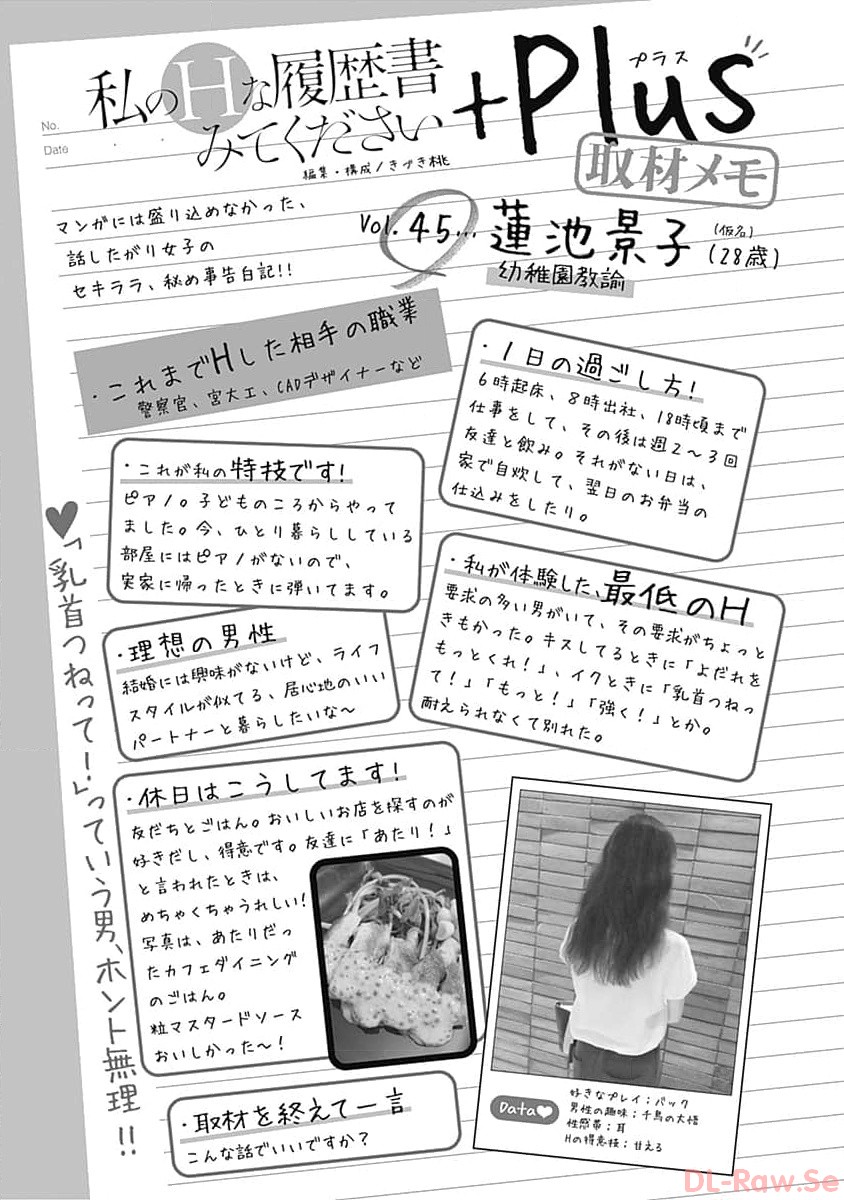 No.
Date
私のHな履歴書
みてください
+Plus
プラス
編集・構成/きづき桃
取材メモ
マンガには盛り込めなかった、
話したがり女子の
セキララ、秘め事告白記!!
Vol.45… 蓮池景子(仮名)(28歳)
幼稚園教諭
・これまでHした相手の職業
警察官、宮大工、CADデザイナーなど
・1日の過ごし方!
6時起床、8時出社、18時頃まで
仕事をして、その後は週2〜3回
友達と飲み。それがない日は、
家で自炊して、翌日のお弁当の
仕込みをしたり。
・これが私の特技です!
ピアノ。子どものころからやって
ました。今、ひとり暮らししている
部屋にはピアノがないので、
実家に帰ったときに弾いてます。
・私が体験した、最低のH
要求の多い男がいて、その要求がちょっと
きもかった。キスしてるときに「よだれを
もっとくれ!」、イクときに「乳首つねっ
て!」「もっと!」「強く!」とか。
耐えられなくて別れた。
・理想の男性
結婚には興味がないけど、ライフ
スタイルが似てる、居心地のいい
パートナーと暮らしたいな〜
♥「乳首つねって!」っていう男、ホント無理!!
・休日はこうしてます!
友だちとごはん。おいしいお店を探すのが
好きだし、得意です。友達に「あたり!」
と言われたときは、
めちゃくちゃうれしい!
写真は、あたりだっ
たカフェダイニング
のごはん。
粒マスタードソース
おいしかった〜!
・取材を終えて一言
こんな話でいいですか?
Data♥
好きなプレイ;バック
男性の趣味;千鳥の大悟
性感帯;耳
Hの得意技;甘える
DL-Raw.Se